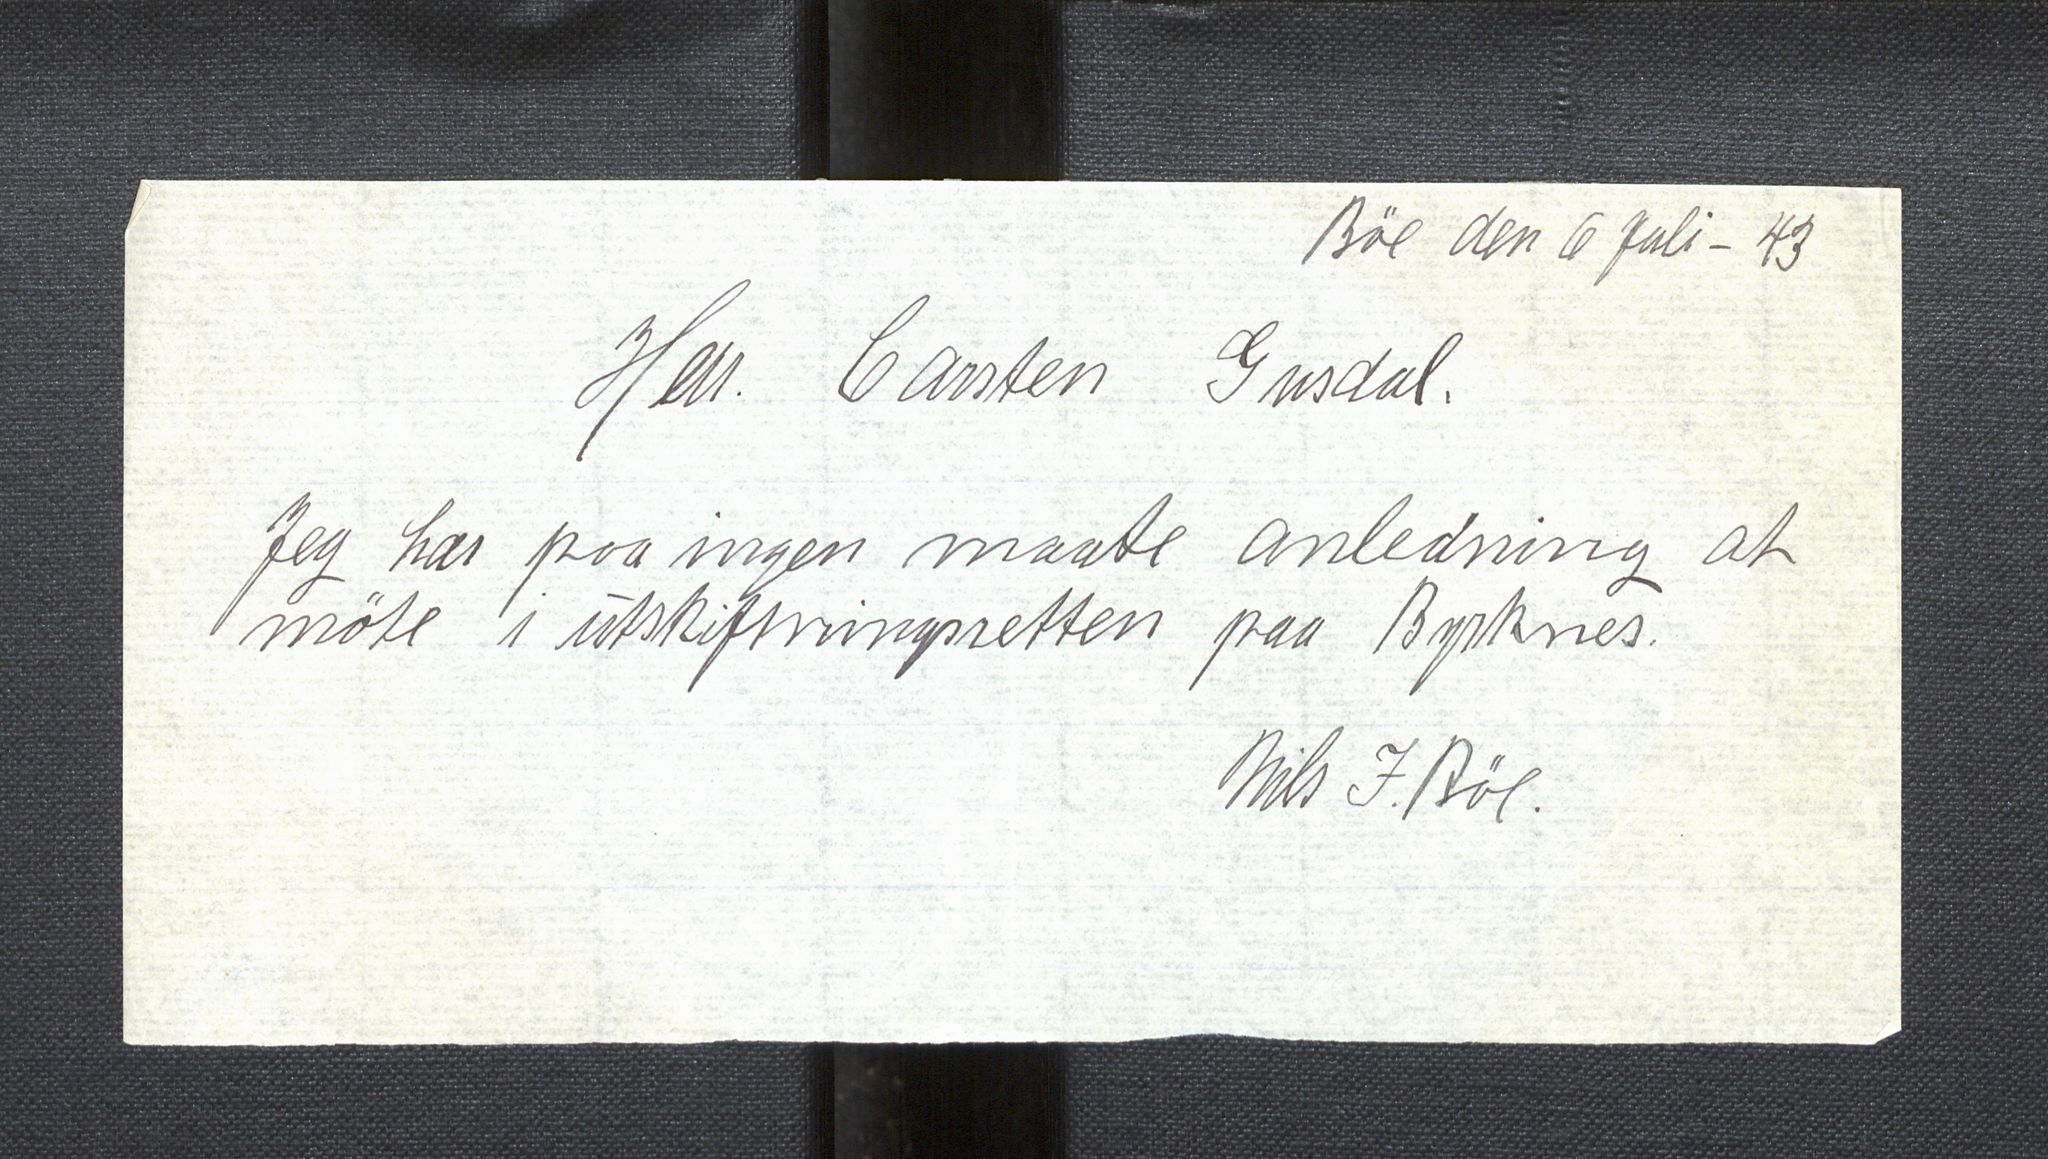 Böe den 6 Juli - 43
Herr. Carsten Gusdal.
Jeg har paa ingen maate anledning at
möte i utskiftningsretten paa Byrknes.
Nils J. Böe.